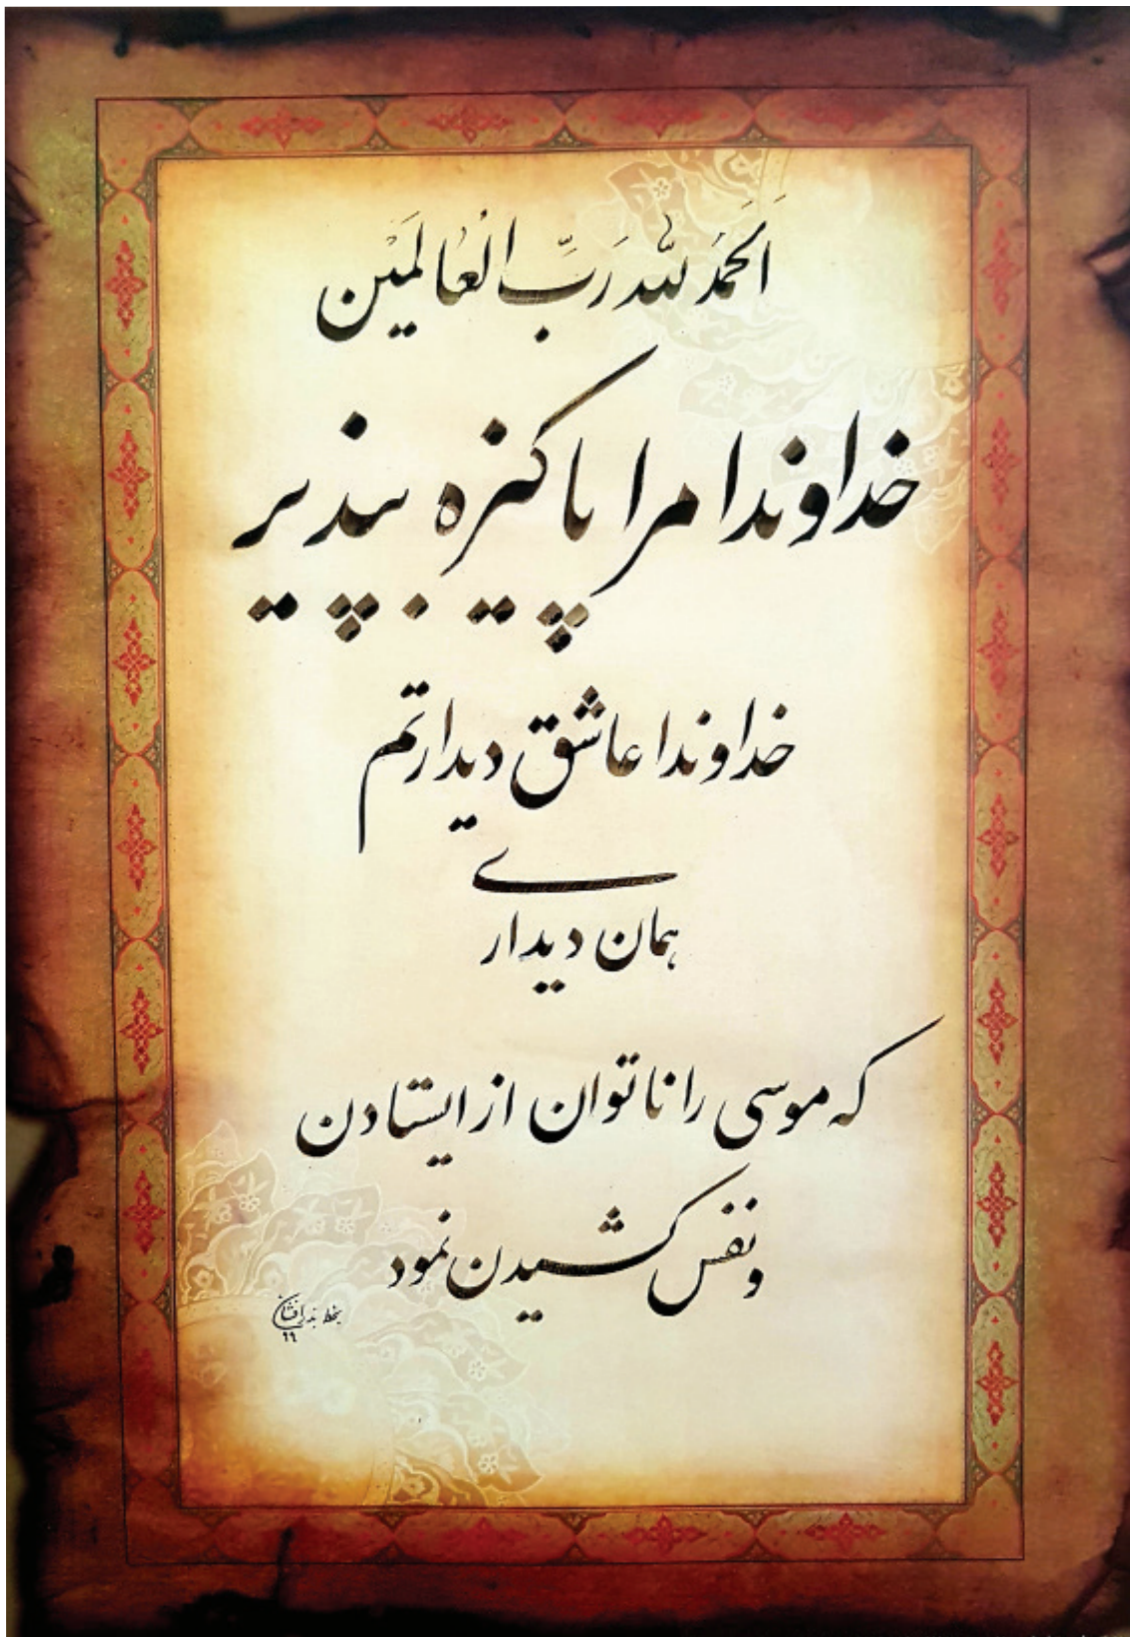 اَلحَمدُ لِلّٰه رَبِّ الْعٰالَمَیْن
خداوندا مرا پاکیزه بپذیر
خداوندا عاشق دیدارتم
همان دیداری
که موسی را ناتوان از ایستادن
و نفس کشیدن نمود
بخط
۹۹